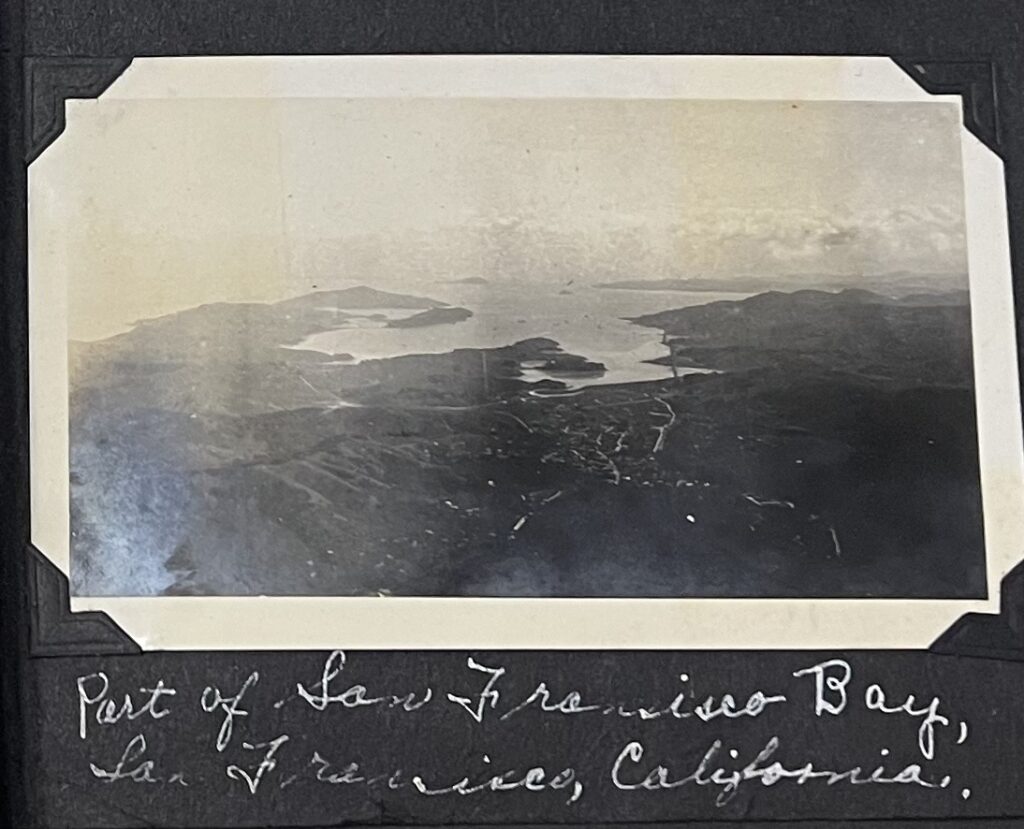 Part of San Francisco Bay,
San Francisco, California.